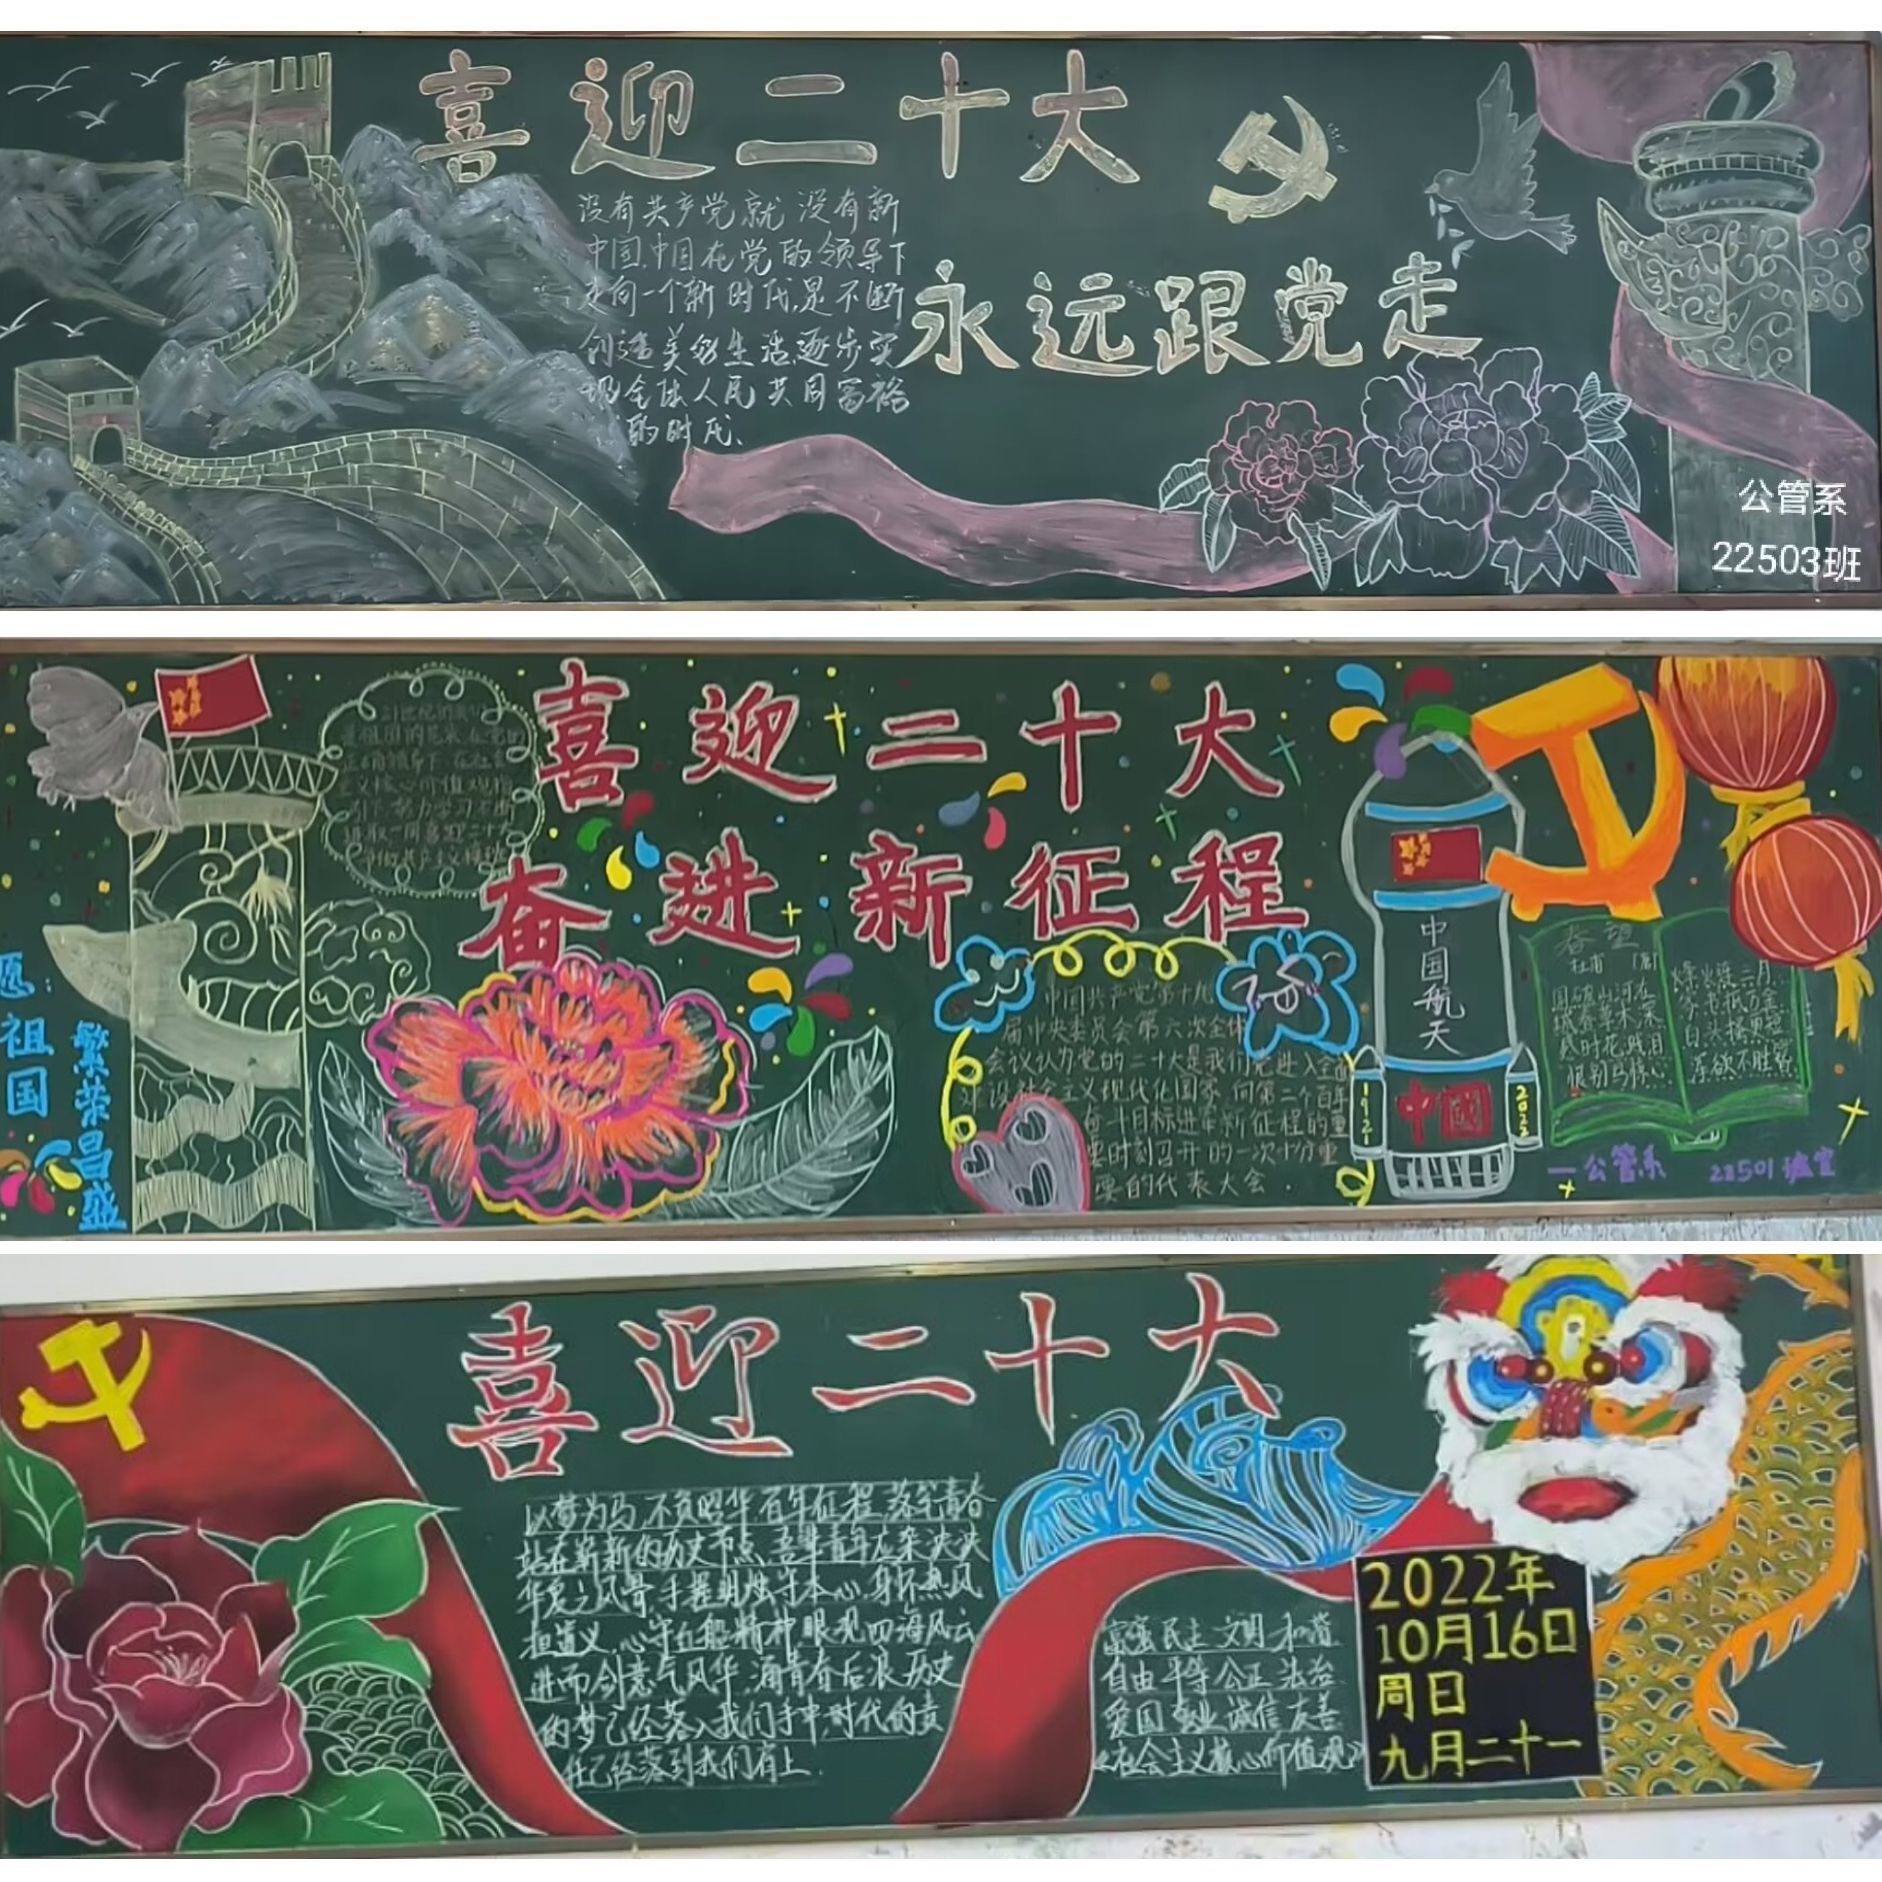 喜迎二十大
没有共产党就没有新
中国,中国在党的领导下
走向一个新时代,是不断
创造美好生活,逐步实
现全体人民共同富裕
的时代、
永远跟党走
公管系
22503班
喜迎二十大
奋进新征程
愿:
祖国
繁荣昌盛
中国共产党第十九
届中央委员会第六次全体
会议认为党的二十大是我们党进入全面
建设社会主义现代化国家向第二个百年
奋斗目标进军新征程的重
要时刻召开的一次十分重
要的代表大会.
中国航天
1921
中國
2022
春望
杜甫 [唐]
国破山河在
城春草木深
感时花溅泪
恨别鸟惊心
烽火连三月
家书抵万金
白头搔更短
浑欲不胜簪
一公管系 22501
喜迎二十大
以梦为马,不负昭华,百年征程,落笔青春
站在崭新的历史节点,吾辈青年应承泱泱
华夏之风骨,手握明烛守本心,身怀热风
担道义,心守红船精神,眼观四海风云
进而创意气风华,涌青春后浪,历史
的梦已经落入我们手中,时代的责
任已经落到我们肩上.
富强民主文明和谐
自由平等公正法治
爱国敬业诚信友善
《社会主义核心价值观》
2022年
10月16日
周日
九月二十一